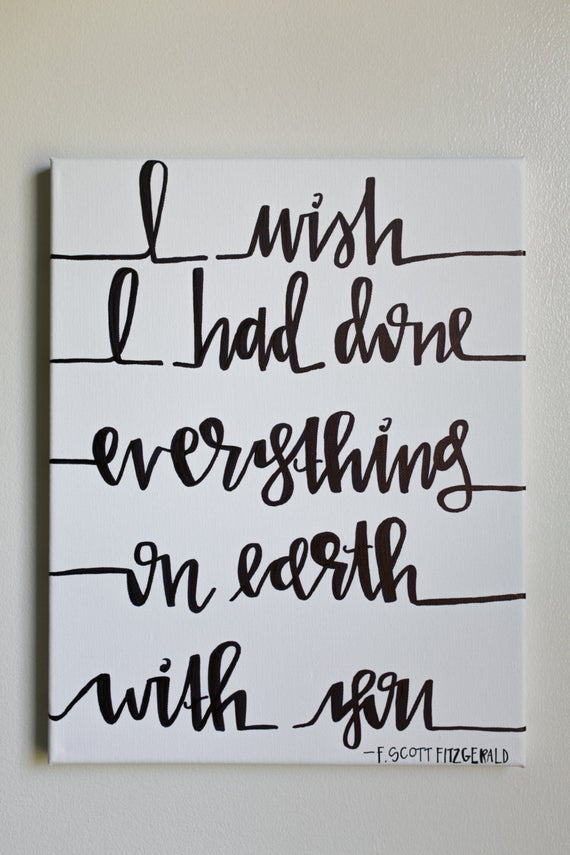 I wish
I had done
everything
on earth
with you
—F. SCOTT FITZGERALD